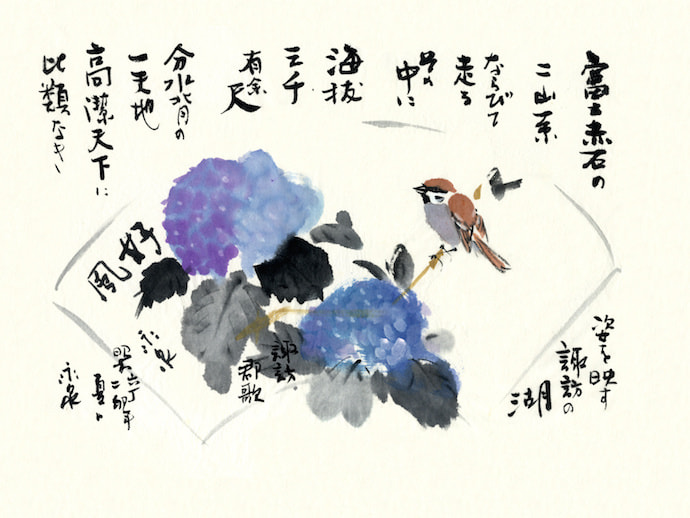 富士赤石の
二山系
ならびて
走る
その
中に
海抜
三千
有余
尺
分水背の
一天地
高潔天下に
比類なき
姿を映す
諏訪の
湖
諏訪
郡歌
好風
永泉
昭六二丁卯年
夏日
永泉